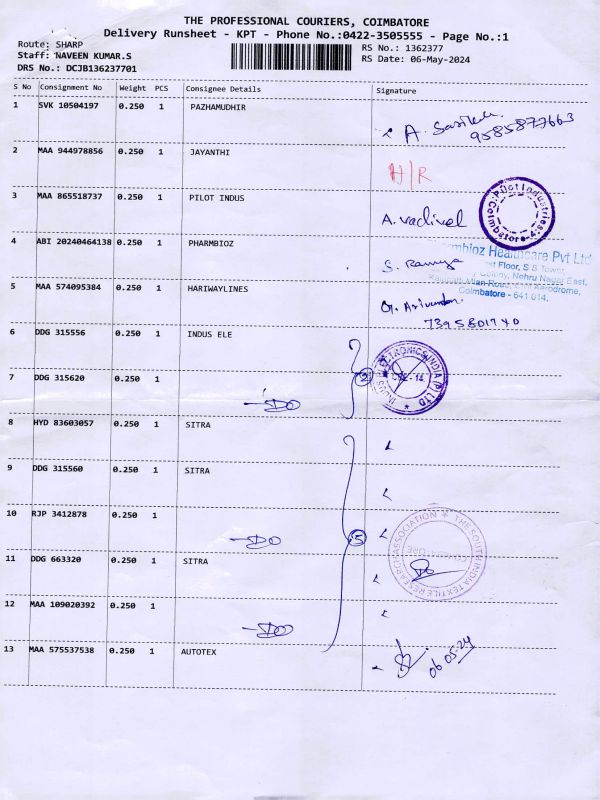 THE PROFESSIONAL COURIERS, COIMBATORE
Delivery Runsheet - KPT - Phone No.:0422-3505555 - Page No.:1
Route: SHARP
Staff: NAVEEN KUMAR.S
DRS No.: DCJB136237701
RS No.: 1362377
RS Date: 06-May-2024
S No Consignment No Weight PCS Consignee Details Signature
1 SVK 10504197 0.250 1 PAZHAMUDHIR
A. 9585877663
2 MAA 944978856 0.250 1 JAYANTHI
H/R
3 MAA 865518737 0.250 1 PILOT INDUS
A. Vadivel
Pilot Industries
Coimbatore-4
4 ABI 20240464138 0.250 1 PHARMBIOZ
S. Ramya
mbioz Healthcare Pvt Ltd
st Floor, S S Tower,
Colony, Nehru Nagar East,
Road, Aerodrome,
Coimbatore - 641 014.
5 MAA 574095384 0.250 1 HARIWAYLINES
6 DDG 315556 0.250 1 INDUS ELE
INDUS ELECTRONICS INDIA (P) LTD
CBE-14
7 DDG 315620 0.250 1
DO
2
8 HYD 83603057 0.250 1 SITRA
9 DDG 315560 0.250 1 SITRA
10 RJP 3412878 0.250 1
DO
5
THE SOUTH INDIA TEXTILE RESEARCH ASSOCIATION
11 DDG 663320 0.250 1 SITRA
12 MAA 109020392 0.250 1
DO
13 MAA 575537538 0.250 1 AUTOTEX
06-05-24